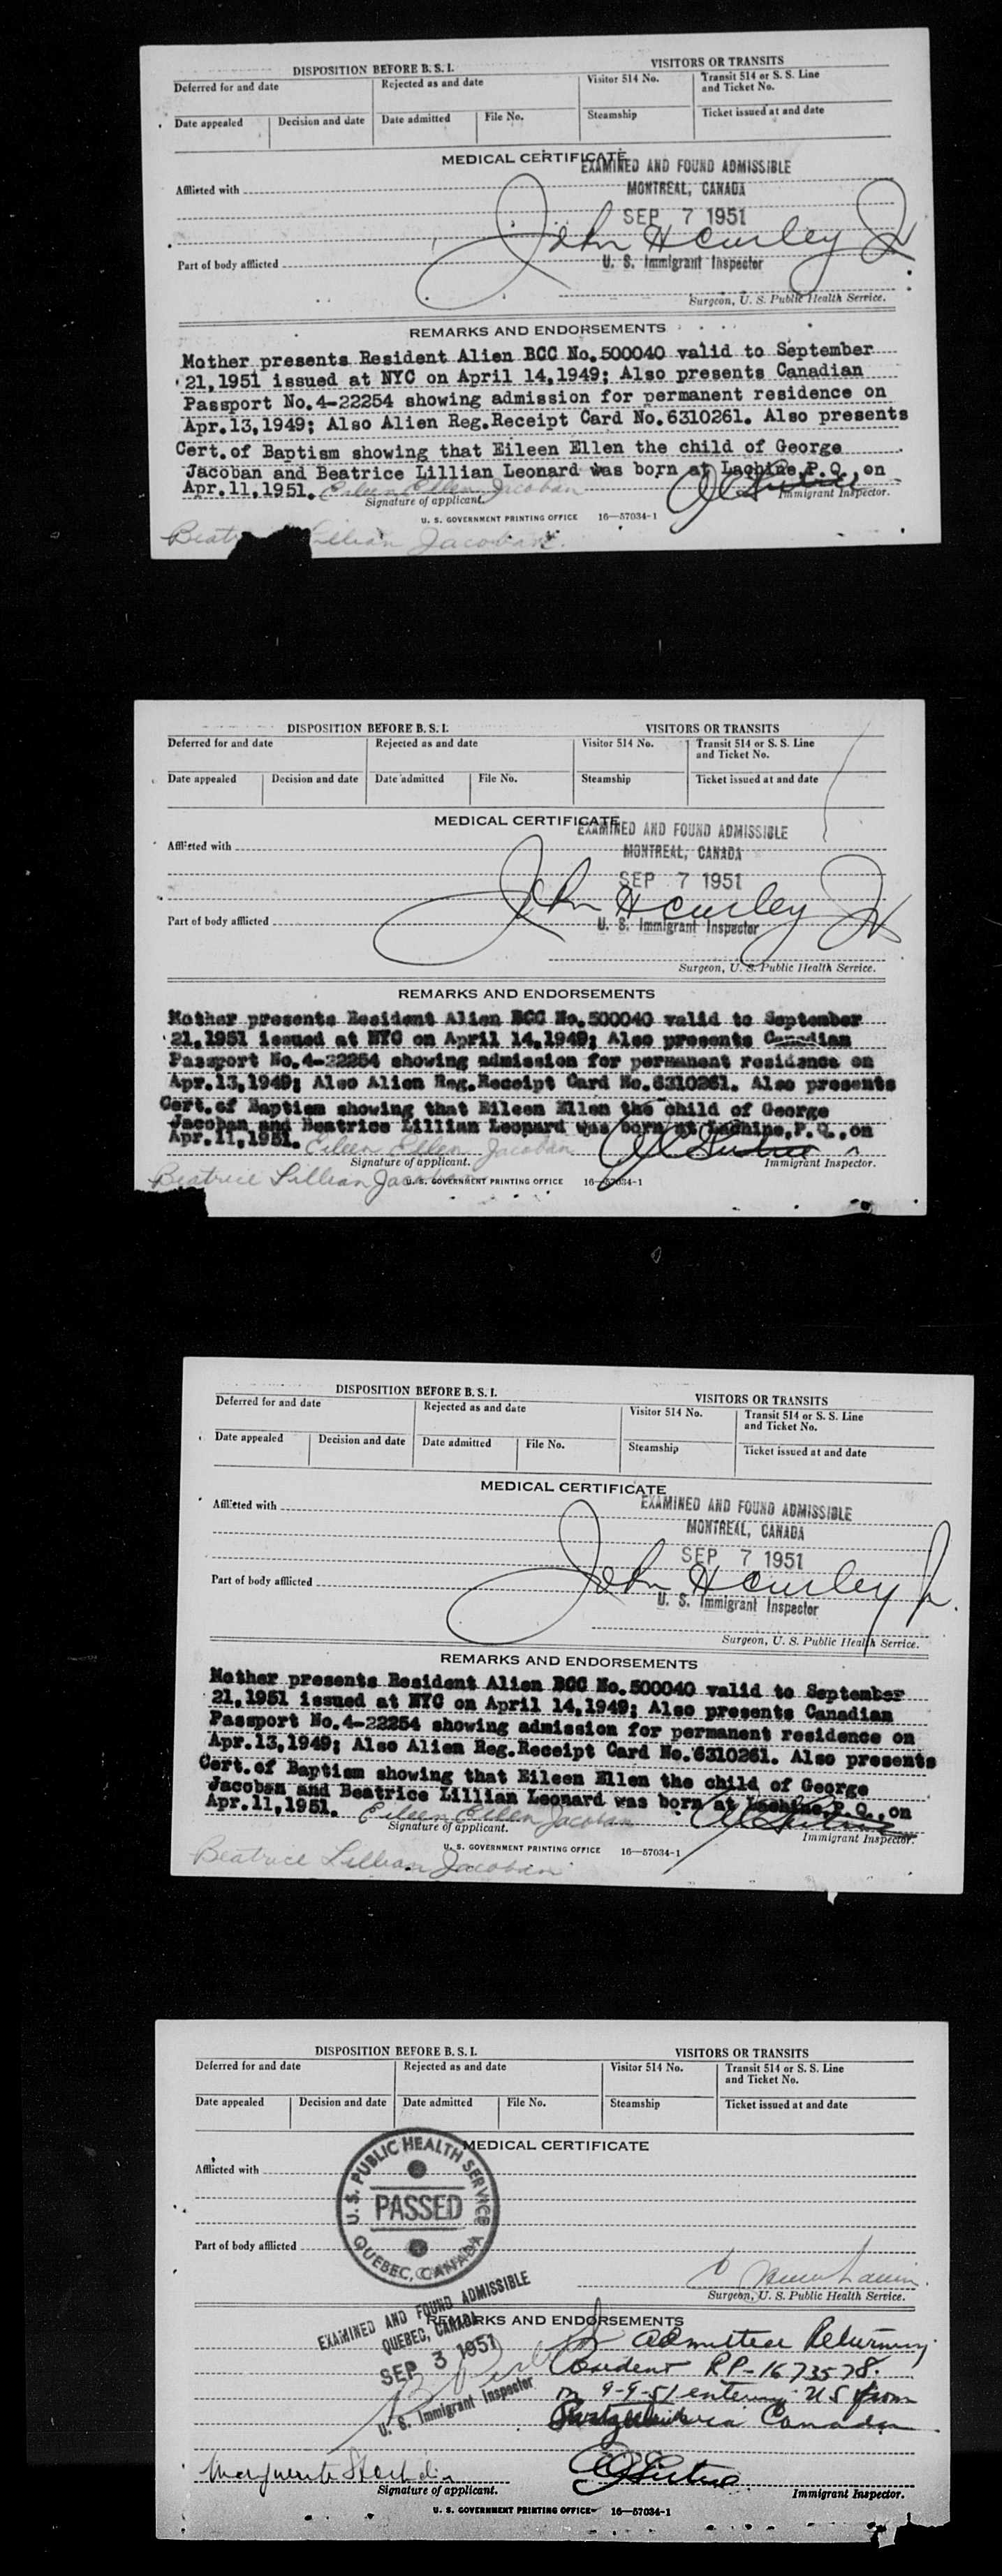 DISPOSITION BEFORE B. S. I.
VISITORS OR TRANSITS
Deferred for and date
Rejected as and date
Visitor 514 No.
Transit 514 or S. S. Line
and Ticket No.
Date appealed
Decision and date
Date admitted
File No.
Steamship
Ticket issued at and date
MEDICAL CERTIFICATE
EXAMINED AND FOUND ADMISSIBLE
Afflicted with
MONTREAL, CANADA
SEP 7 1951
John H Curley Jr
Part of body afflicted
U. S. Immigrant Inspector
Surgeon, U. S. Public Health Service.
REMARKS AND ENDORSEMENTS
Mother presents Resident Alien BCC No.500040 valid to September
21,1951 issued at NYC on April 14,1949; Also presents Canadian
Passport No.4-22254 showing admission for permanent residence on
Apr.13,1949; Also Alien Reg.Receipt Card No.6310261. Also presents
Cert.of Baptism showing that Eileen Ellen the child of George
Jacoban and Beatrice Lillian Leonard was born at Lachine,P.Q.,on
Apr.11,1951. Eileen Ellen Jacoban
Signature of applicant.
Immigrant Inspector.
U. S. GOVERNMENT PRINTING OFFICE 16—57034-1
Lillian Jacoban.
DISPOSITION BEFORE B. S. I.
VISITORS OR TRANSITS
Deferred for and date
Rejected as and date
Visitor 514 No.
Transit 514 or S. S. Line
and Ticket No.
Date appealed
Decision and date
Date admitted
File No.
Steamship
Ticket issued at and date
MEDICAL CERTIFICATE
EXAMINED AND FOUND ADMISSIBLE
Afflicted with
MONTREAL, CANADA
SEP 7 1951
John H Curley Jr
Part of body afflicted
U. S. Immigrant Inspector
Surgeon, U. S. Public Health Service.
REMARKS AND ENDORSEMENTS
Mother presents Resident Alien BCC No.500040 valid to September
21,1951 issued at NYC on April 14,1949; Also presents Canadian
Passport No.4-22254 showing admission for permanent residence on
Apr.13,1949; Also Alien Reg.Receipt Card No.6310261. Also presents
Cert.of Baptism showing that Eileen Ellen the child of George
Jacoban and Beatrice Lillian Leonard was born at Lachine,P.Q.,on
Apr.11,1951. Eileen Ellen Jacoban
Signature of applicant.
Immigrant Inspector.
Beatrice Lillian Jacoban
U. S. GOVERNMENT PRINTING OFFICE 16—57034-1
DISPOSITION BEFORE B. S. I.
VISITORS OR TRANSITS
Deferred for and date
Rejected as and date
Visitor 514 No.
Transit 514 or S. S. Line
and Ticket No.
Date appealed
Decision and date
Date admitted
File No.
Steamship
Ticket issued at and date
MEDICAL CERTIFICATE
EXAMINED AND FOUND ADMISSIBLE
Afflicted with
MONTREAL, CANADA
SEP 7 1951
John H Curley Jr.
Part of body afflicted
U. S. Immigrant Inspector
Surgeon, U. S. Public Health Service.
REMARKS AND ENDORSEMENTS
Mother presents Resident Alien BCC No.500040 valid to September
21,1951 issued at NYC on April 14,1949; Also presents Canadian
Passport No.4-22254 showing admission for permanent residence on
Apr.13,1949; Also Alien Reg.Receipt Card No.6310261. Also presents
Cert.of Baptism showing that Eileen Ellen the child of George
Jacoban and Beatrice Lillian Leonard was born at Lachine,P.Q.,on
Apr.11,1951. Eileen Ellen Jacoban
Signature of applicant.
Immigrant Inspector.
U. S. GOVERNMENT PRINTING OFFICE 16—57034-1
Beatrice Lillian Jacoban
DISPOSITION BEFORE B. S. I.
VISITORS OR TRANSITS
Deferred for and date
Rejected as and date
Visitor 514 No.
Transit 514 or S. S. Line
and Ticket No.
Date appealed
Decision and date
Date admitted
File No.
Steamship
Ticket issued at and date
MEDICAL CERTIFICATE
Afflicted with
U. S. PUBLIC HEALTH SERVICE
PASSED
QUEBEC, CANADA
Part of body afflicted
Surgeon, U. S. Public Health Service.
REMARKS AND ENDORSEMENTS
EXAMINED AND FOUND ADMISSIBLE
QUEBEC, CANADA
SEP 3 1951
U. S. Immigrant Inspector
admitted Returning
Resident RP-1673578.
on 9-9-51 entering US from
via Canada
Marguerite
Signature of applicant.
Immigrant Inspector.
U. S. GOVERNMENT PRINTING OFFICE 16—57034-1